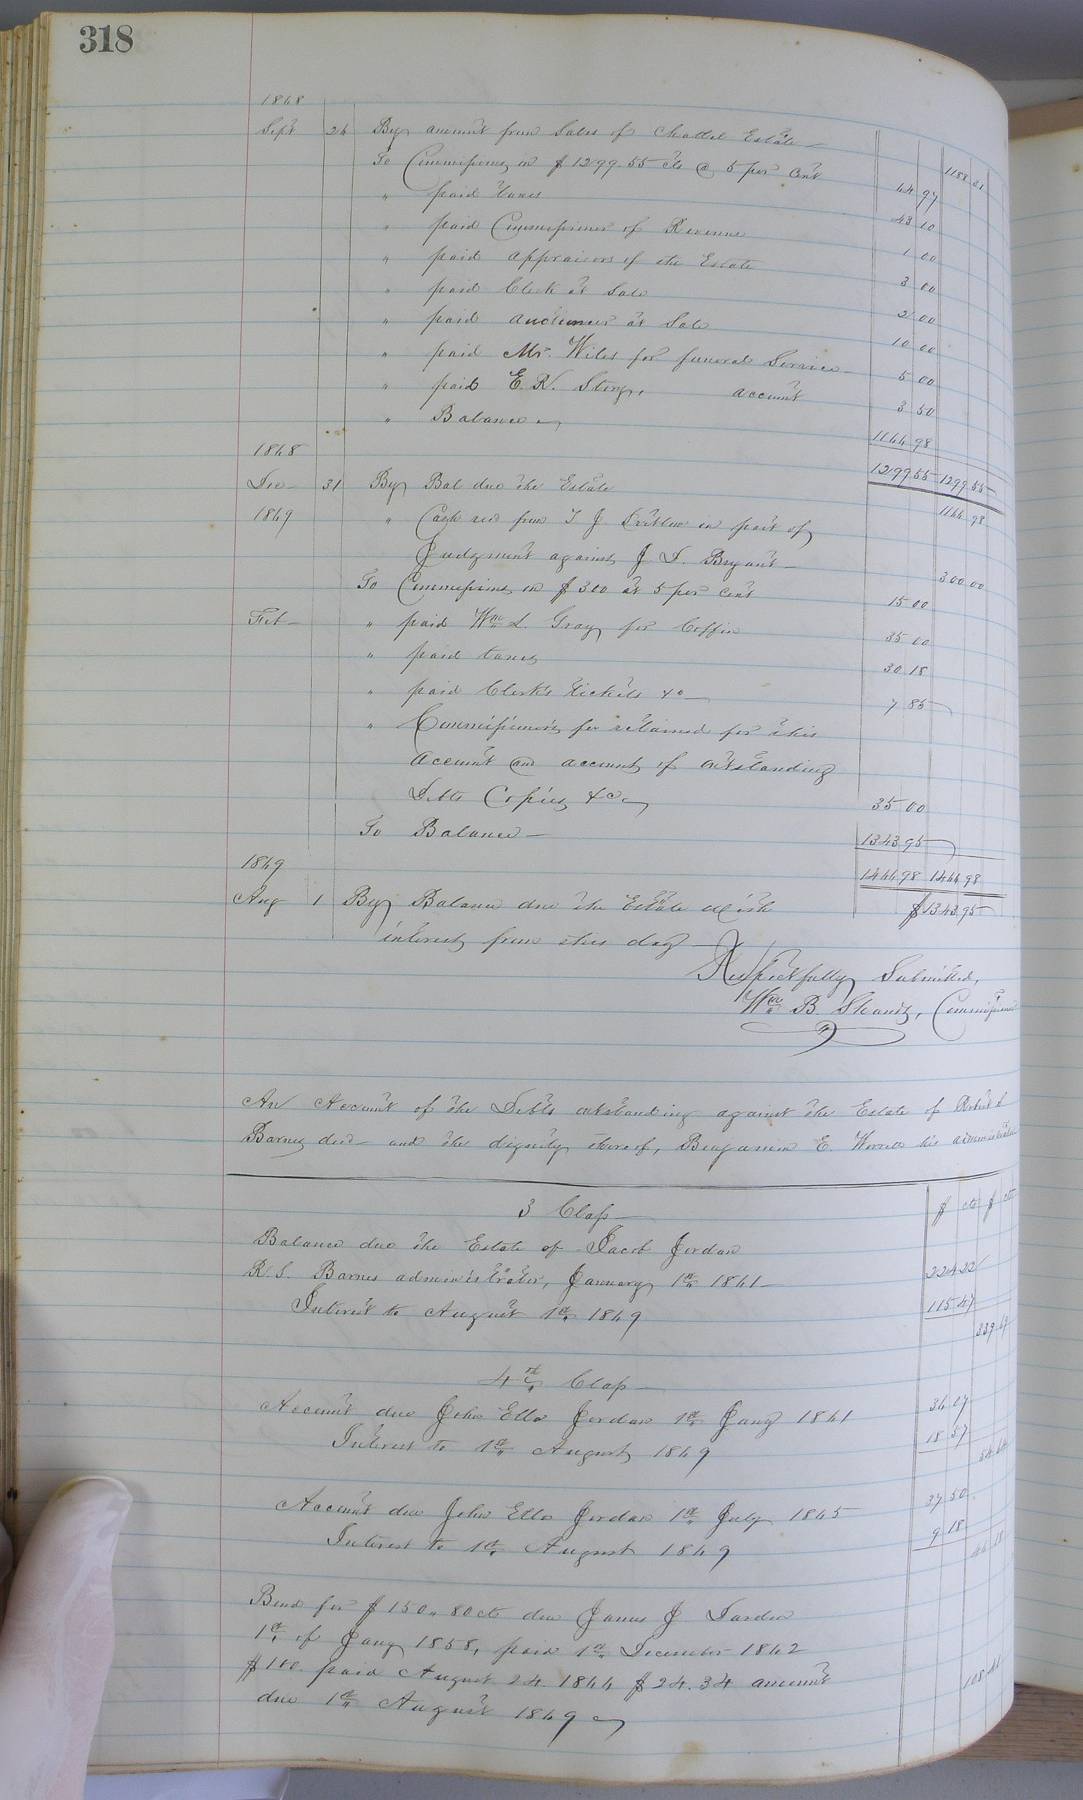 318
1868
Sept 26 By amount from Sales of Chattel Estate 1188
To Commissions on $1299.55 cts @ 5 per Cent 64 97
" paid taxes 43 10
" paid Commissioner of Revenue 1 00
" paid appraisors of the Estate 3 00
" paid Clerk at Sale 2 00
" paid auctioneer at Sale 10 00
" paid Mr. Wiles for funeral Service 5 00
" paid E. N. account 3 50
" Balance 1166 98
1868 1299 55 1299 55
Dec 31 By Bal due the Estate 1166 98
1869 " Cash recd from T J in part of
Judgment against J. D. Bryant 300 00
To Commissions on $300 at 5 per cent 15 00
Feb " paid Wm L. Gray for Coffin 35 00
" paid taxes 30 18
" paid Clerks tickets &c 7 85
" Commissioners fee retained for this
account and account of outstanding
Debts Copies &c 35 00
To Balance 1343 95
1869 1466 98 1466 98
Aug 1 By Balance due the Estate with $1343.95
interest from this day
Respectfully Submitted,
Wm B. Shands, Commissioner
An Account of the Debts outstanding against the Estate of Robert S
Barnes decd and the dignity thereof, Benjamin E. his administrator
$ cts $ cts
3 Class
Balance due the Estate of Jacob Jordan
R. S. Barnes administrator, January 1st 1861 224 22
Interest to August 1st 1869 115 47
339 69
4th Class
Account due John Ello Jordan 1st Jany 1861 36 07
Interest to 1st August 1869 18 57
54 64
Account due John Ello Jordan 1st July 1865 37 50
Interest to 1st August 1869 9 18
46 68
Bond for $150.80 cts due James J
1st of Jany 1858, paid 1st December 1862
$100. paid August 24 1866 $24.34 amount
due 1st August 1869 108